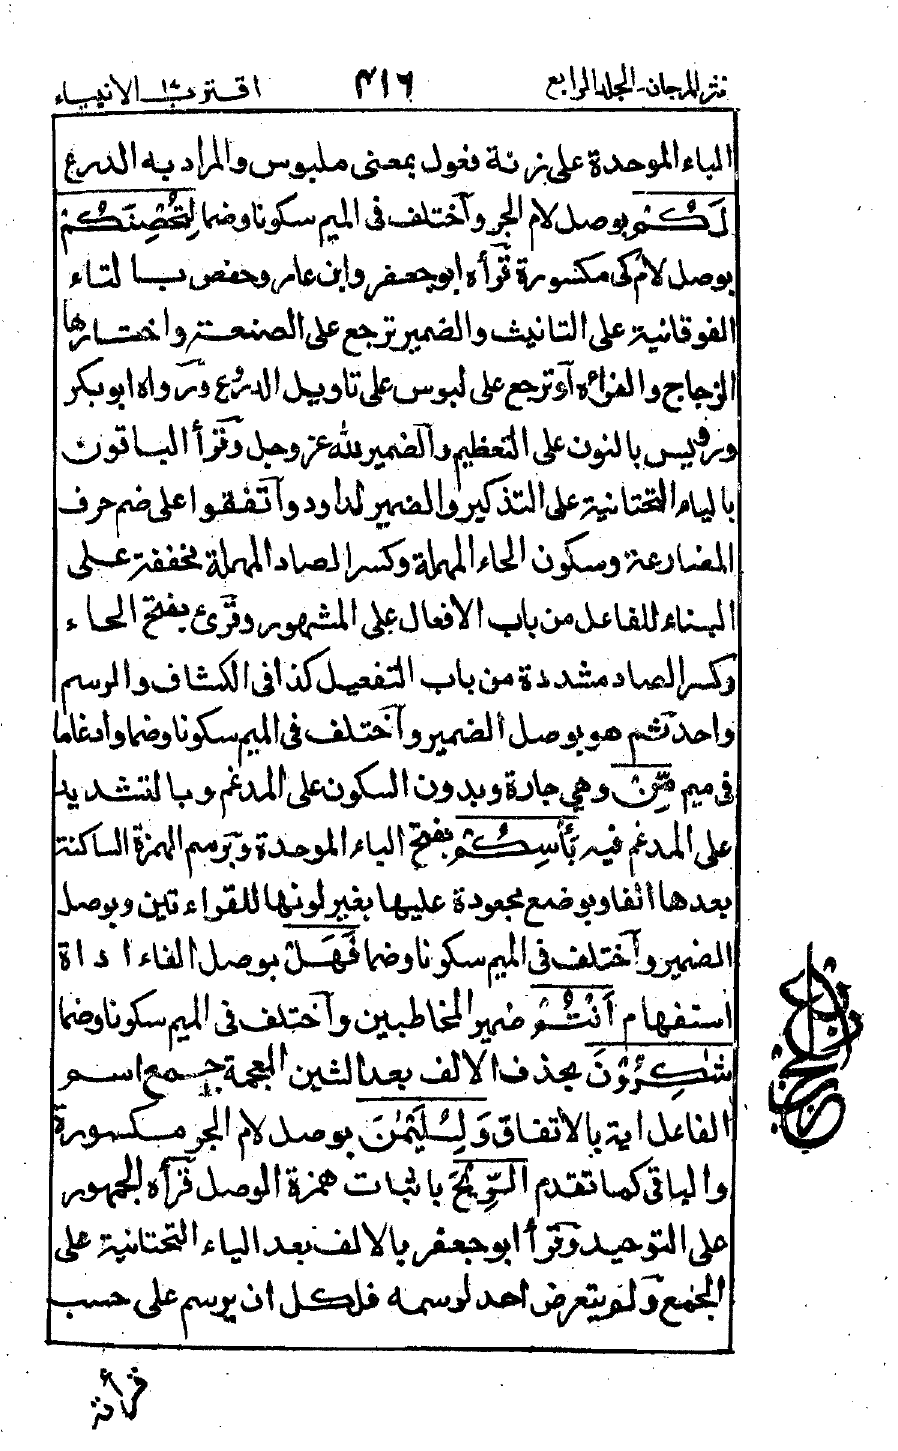 نثر المرجان - المجلد الرابع ٤١٦ اقترب ١٧ الانبياء
الباء الموحدة على زنة فعول بمعنى ملبوس والمراد به الدرع
لَكُمْ بوصل لام الجر وآختلف فى الميم سكونا وضما لِتُحْصِنَكُمْ
بوصل لام كى مكسورة قرأه ابو جعفر وابن عامر وحفص بـا لتاء
الفوقانية على التانيث والضمير ترجع على الصنعة واختارها
الزجاج والفراء او ترجع على لبوس على تاويل الدروع ورواه ابو بكر
ورويس بالنون على التعظيم والضمير لله عز وجل وقرأ الباقون
بالياء التحتانية على التذكير والضمير لداود واتفقوا على ضم حرف
المضارعة وسكون الحاء المهملة وكسر الصاد المهملة مخففة على
البناء للفاعل من باب الافعال على المشهور وقرئ بفتح الحاء
وكسر الصاد مشددة من باب التفعيل كذا فى الكشاف والرسم
واحد ثم هو بوصل الضمير وآختلف فى الميم سكونا وضما وادغاما
فى ميم مِّنْ وهي جارة وبدون السكون على المدغم وبالتشديد
على المدغم فيه بَأْسِكُمْ بفتح الباء الموحدة وبرسم الهمزة الساكنة
بعدها الفا وبوضع مجعودة عليها بغير لونها للقراءتين وبوصل
الضمير وآختلف فى الميم سكونا وضما فَهَلْ بوصل الفاء اداة
استفهام أَنْتُمْ ضمير المخاطبين وآختلف فى الميم سكونا وضما
شٰكِرُوْنَ بحذف الالف بعد الشين المعجمة جمع اسم
الفاعل اية بالاتفاق وَلِسُلَيْمٰنَ بوصل لام الجر مكسورة
والباقى كما تقدم الرِّيْحَ باثبات همزة الوصل قرأه الجمهور
على التوحيد وقرأ ابو جعفر بالالف بعد الياء التحتانية على
الجمع ولم يتعرض احد لرسمه فلكل ان يرسم على حسب
قرأته